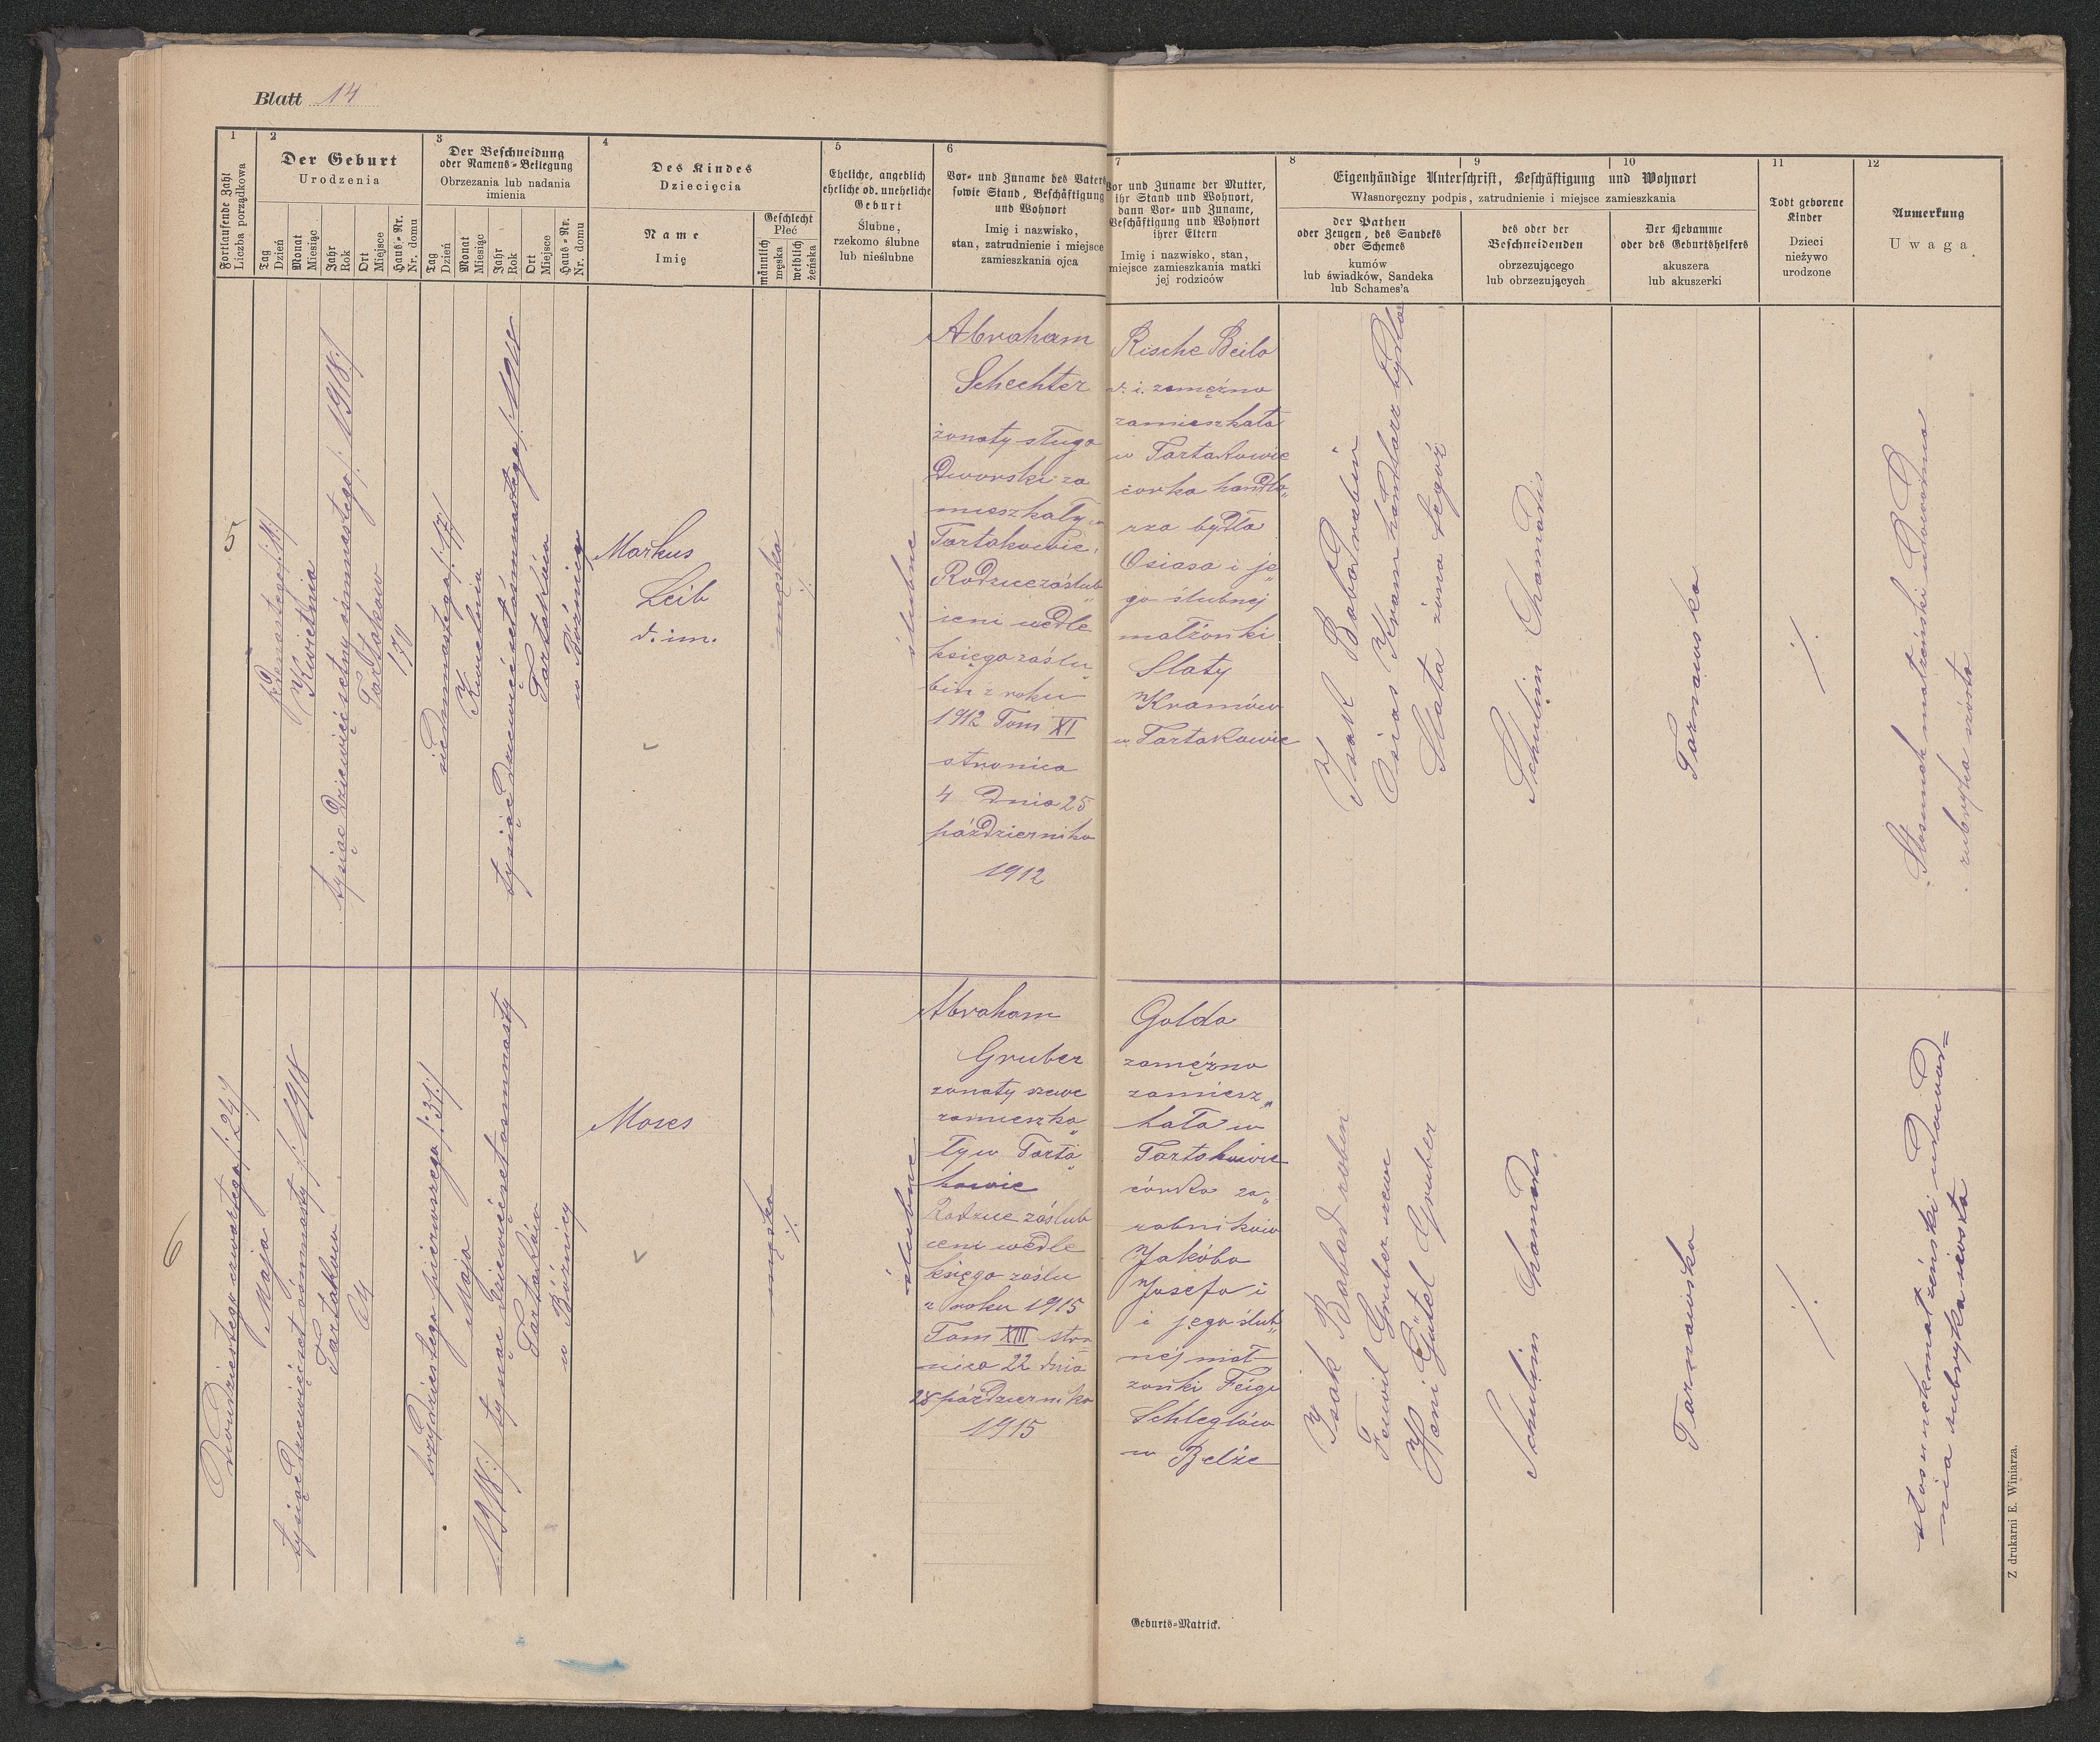 Blatt 14
1
Fortlaufende Zahl
Liczba porządkowa
2
Der Geburt
Urodzenia
Tag
Dzień
Monat
Miesiąc
Jahr
Rok
Ort
Miejsce
Haus-Nr.
Nr. domu
3
Der Beschneidung
oder Namens-Beilegung
Obrzezania lub nadania
imienia
Tag
Dzień
Monat
Miesiąc
Jahr
Rok
Ort
Miejsce
Haus-Nr.
Nr. domu
4
Des Kindes
Dziecięcia
Name
Imię
Geschlecht
Płeć
männlich
męska
weiblich
żeńska
5
Eheliche, angeblich
eheliche od. uneheliche
Geburt
Ślubne,
rzekomo ślubne
lub nieślubne
6
Vor- und Zuname des Vaters
sowie Stand, Beschäftigung
und Wohnort
Imię i nazwisko,
stan, zatrudnienie i miejsce
zamieszkania ojca
7
Vor und Zuname der Mutter,
ihr Stand und Wohnort,
dann Vor- und Zuname,
Beschäftigung und Wohnort
ihrer Eltern
Imię i nazwisko, stan,
miejsce zamieszkania matki
jej rodziców
Eigenhändige Unterschrift, Beschäftigung und Wohnort
Własnoręczny podpis, zatrudnienie i miejsce zamieszkania
8
der Pathen
oder Zeugen, des Sandeks
oder Schemes
kumów
lub świadków, Sandeka
lub Schames'a
9
des oder der
Beschneidenden
obrzezującego
lub obrzezujących
10
Der Hebamme
oder des Geburtshelfers
akuszera
lub akuszerki
11
Todt geborene
Kinder
Dzieci
nieżywo
urodzone
12
Anmerkung
Uwaga
5
Kwietnia
tysiąc dziewięćsetny ośmnastego /:1918:/
Tartaków
170
siedmnastego /:17/
Kwietnia
tysiąc dziewięćset ośmnastego /:1918
Tartaków
w Bóżnicy
Markus
Leib
d. im.
męska
./.
ślubne
Abraham
Schechter
żonaty sługa
Dworski za
mieszkały w
Tartakowie,
Rodzice zaślub„
ieni wedle
księga zaślu„
bin z roku
1912 Tom XI
stronica
4 dnia 25
października
1912
Rische Beila
d. i. zamężna
zamieszkała
w Tartakowie
córka handla„
rza bydła
Osiasa i je„
go ślubnej
małżonki
Slaty
Kramów
w Tartakowie
Isak Babad rabin
Osias Kram handlarz bydła
Slata żona tegoż
Schulim Charmats
Tarnawska
./.
Stosunek małżeński udowodnia
rubryka szósta
6
Dwudziestego czwartego /:24/
Maja
tysiąc dziewięćset ośmnasty /:1918
Tartaków
64
trzydziestego pierwszego /:31:/
Maja
/:1918:/ tysiąc dziewięćset ośmnasty
Tartaków
w Bóżnicy
Moses
męska
./.
ślubne
Abraham
Gruber
żonaty szewc
zamieszka„
ły w Tarta„
kowie
Rodzice zaślub
ieni wedle
księga zaślu
z roku 1915
Tom XIII stro
nica 22 dnia
28 października
1915
Golda
zamężna
zamiesz„
kała w
Tartakowie
córka za„
robników
Jakóba
Josefa i
i jego ślub„
nej mał-
żonki Feige
Schleglów
w Bełzie
Isak Babad rabin
Feiwil Gruber szewc
Heni Gütel Gruber
Schulim Charmats
Tarnawska
./.
stosunek małżeński udowod=
nia rubryka szósta
Geburts-Matrick.
Z drukarni E. Winiarza.